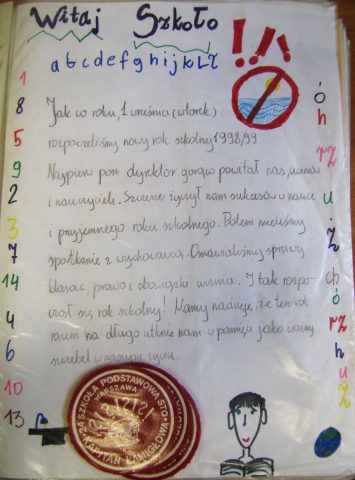 Witaj Szkoło !!!
a b c d e f g h i j k l ł
1
8
5
9
2
3
7
14
4
6
10
13
Jak co roku, 1 września (wtorek)
rozpoczeliśmy nowy rok szkolny 1998/99
Najpierw pan dyrektor gorąco powitał nas, uczniów
i nauczycieli. Szczerze życzył nam sukcesów w nauce
i przyjemnego roku szkolnego. Potem mieliśmy
spotkanie z wychowawcą. Omawialiśmy sprawy
klasowe, prawa i obowiązki ucznia. I tak rozpo-
czął się rok szkolny! Mamy nadzieję, że ten rok
razem na długo utknie nam w pamięci jako ważny
szczebel w naszym życiu.
ó
h
rz
u
ż
ch
ó
rz
h
u
ż
SZKOŁA PODSTAWOWA STO
WARSZAWA
KAPITAN KAMIGŁOWA